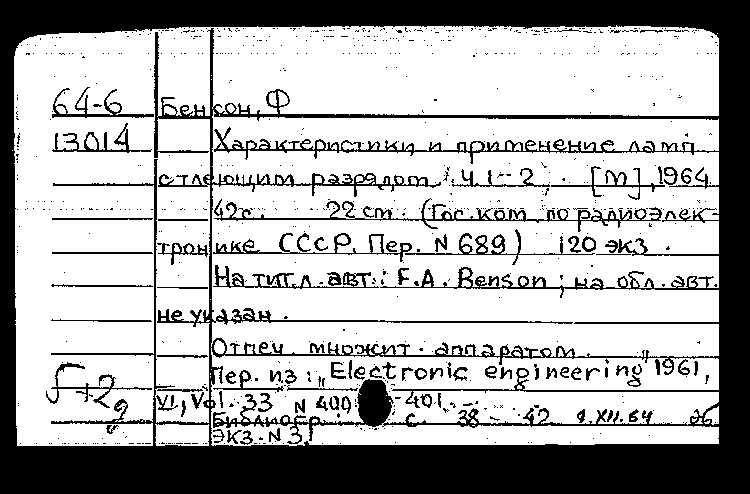 64-6 Бенсон, Ф
13014 Характеристики и применение ламп
с тлеющим разрядом. Ч. 1-2. [М], 1964
42с. 22 см. (Гос. ком. по радиоэлек-
тронике СССР. Пер. N 689) 120 экз.
На тит. л. авт.: F.A. Benson; на обл. авт.
не указан.
Отпеч. множит. аппаратом.
Пер. из: „Electronic engineering" 1961,
VI, Vol. 33 N 400 -401.
Библиогр. с. 38 - 42 9.XII.64
экз. N 31